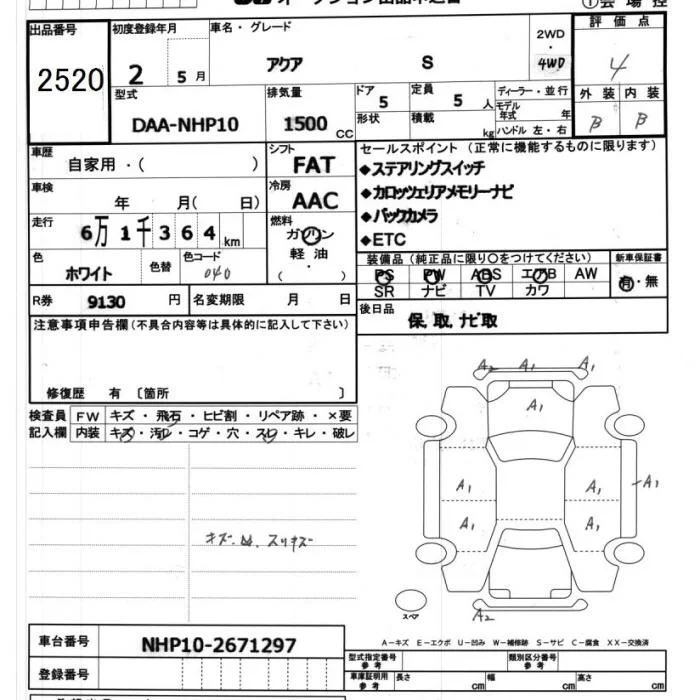 オークション出品申込書 ①会場控
出品番号 初度登録年月 車名・グレード 2WD・4WD 評価点
2520 2 5月 アクア S 4
型式 排気量 ドア 定員 ディーラー・並行 外装 内装
DAA-NHP10 1500 CC 5 5 人 モデル年式 年 B B
形状 積載 kg ハンドル 左・右
車歴 シフト セールスポイント (正常に機能するものに限ります)
自家用・( ) FAT ◆ステアリングスイッチ
車検 冷房 ◆カロッツェリアメモリーナビ
年 月( 日) AAC ◆バックカメラ
走行 6万1千364km 燃料 ◆ETC
ガソリン
軽油
・
( )
色 色替 色コード 装備品 (純正品に限り○をつけてください) 新車保証書
ホワイト 040 PS PW ABS エアB AW 有・無
SR ナビ TV カワ
R券 9130 円 名変期限 月 日 後日品
保,取,ナビ取
注意事項申告欄(不具合内容等は具体的に記入して下さい)
修復歴 有 〔箇所 〕
検査員 FW キズ・飛石・ヒビ割・リペア跡・×要
記入欄 内装 キズ・汚レ・コゲ・穴・スレ・キレ・破レ
A2 A1 A1
A1
A1 A1 A1
A1 A1
キズ スリキズ
スペア A2
A-キズ E-エクボ U-凹み W-補修跡 S-サビ C-腐食 XX-交換済
車台番号 NHP10-2671297
型式指定番号 参考 類別区分番号 参考
登録番号 車庫証明用 参考 長さ cm 幅 cm 高さ cm